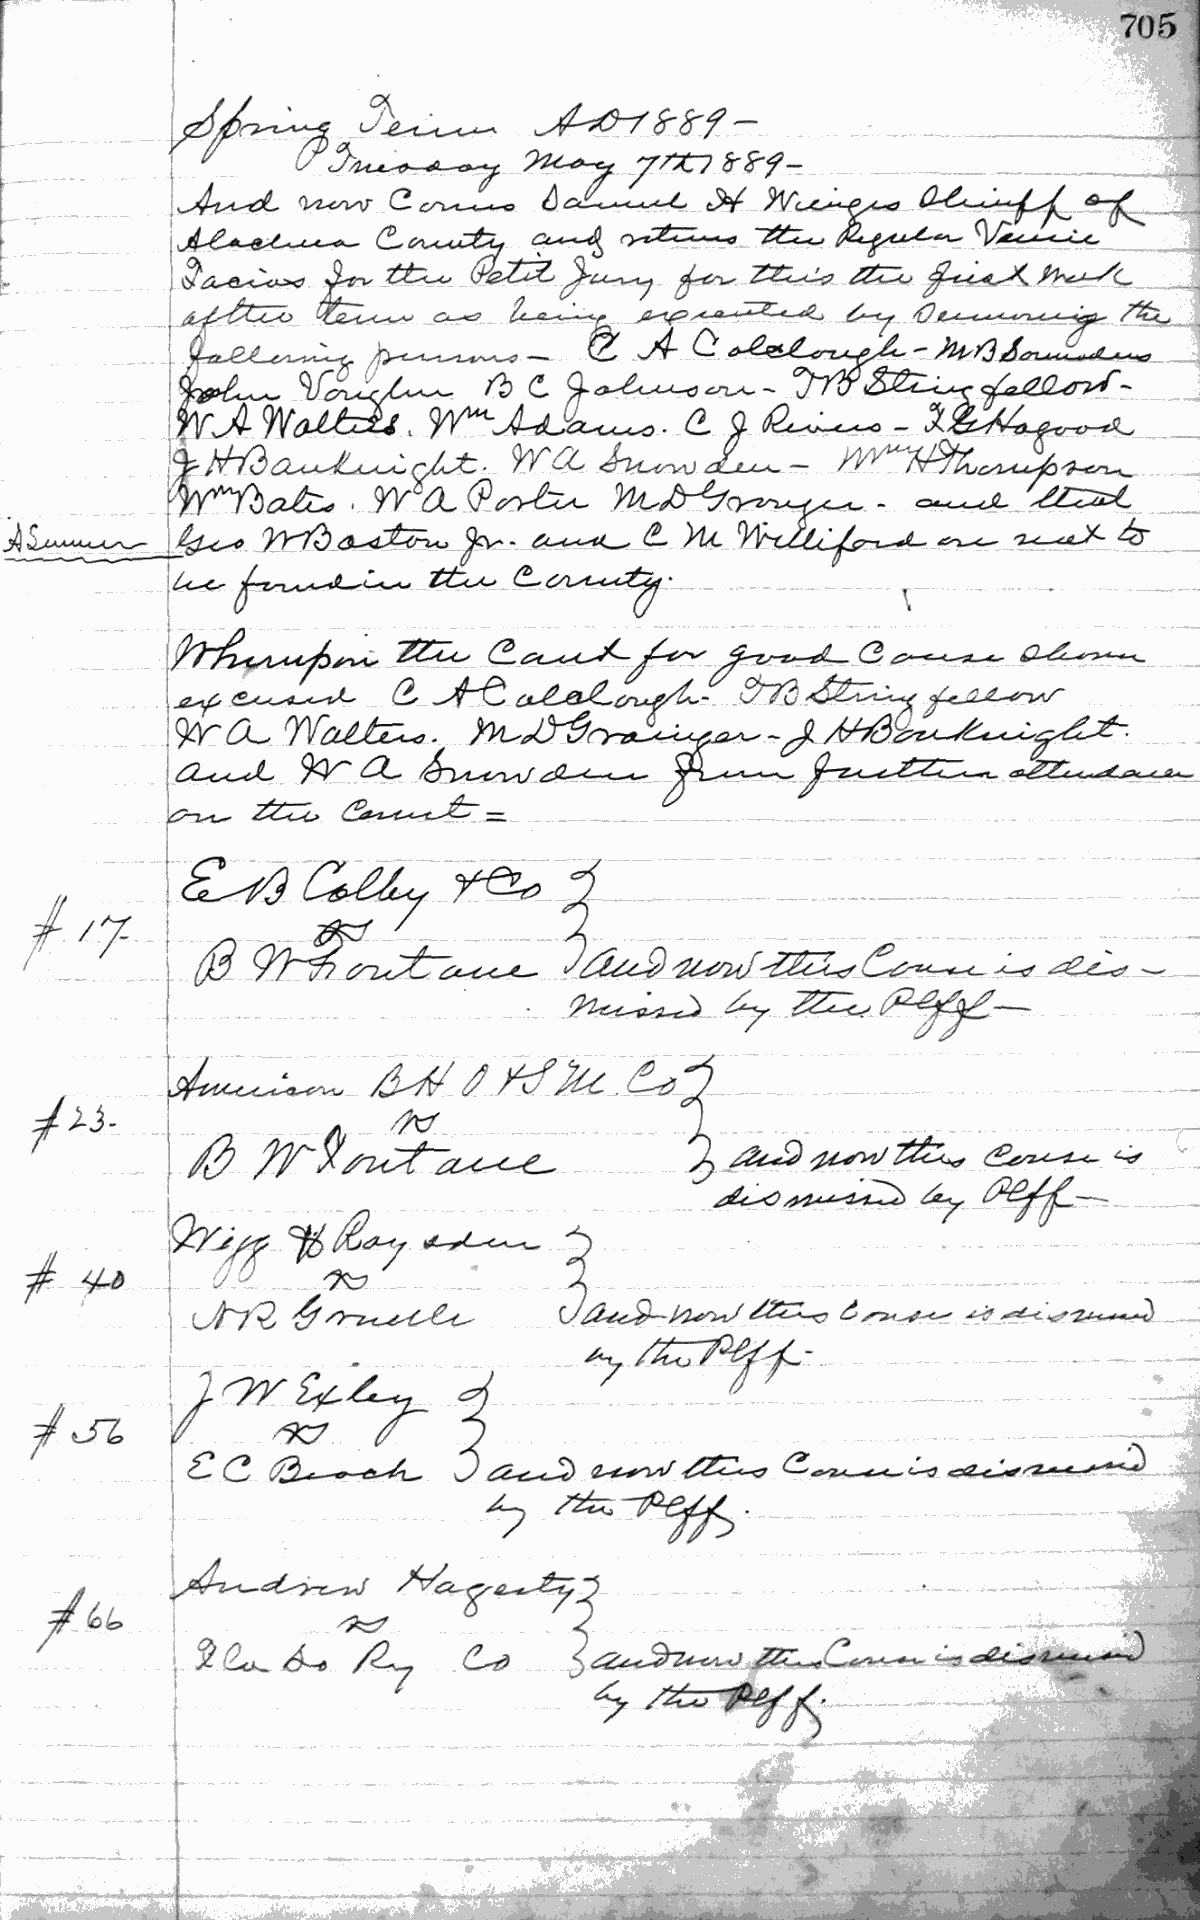 705
Spring Term AD 1889 -
Tuesday May 7th 1889 -
And now Comes Samuel H Wienges Sheriff of
Alachua County and returns the Regular Venire
Facias for the Petit Jury for this the first week
of the term as being executed by Summoning the
following persons - C A Colclough - M B Saunders
John Vaughn B C Johnson - T B Stringfellow -
W A Walters. Wm Adams. C J Rivers - F G Hagood
J H Bauknight. W A Snowden - Wm H Thompson
Wm Bates. W A Porter M D Granger - and that
A Sumner
Geo W Boston Jr. and C M Williford are not to
be found in the County.
Whereupon the Court for good Cause shown
excused C A Colclough - T B Stringfellow
W A Walters. M D Grainger - J H Bauknight.
and W A Snowden from further attendance
on the Court =
E B Colby & Co
# 17-
vs
B W Fontane and now this Cause is dis-
missed by the Plff -
American B H O & S M. Co
# 23-
vs
B W Fontane and now this cause is
dismissed by Plff -
Wigg & Raysden
# 40
vs
N R Gruelle and now this Cause is dismissed
by the Plff -
J W Exley
# 56
vs
E C Beach and now this Cause is dismissed
by the Plff.
Andrew Hagerty
# 66
vs
Fla So Ry Co and now this Cause is dismissed
by the Plff.